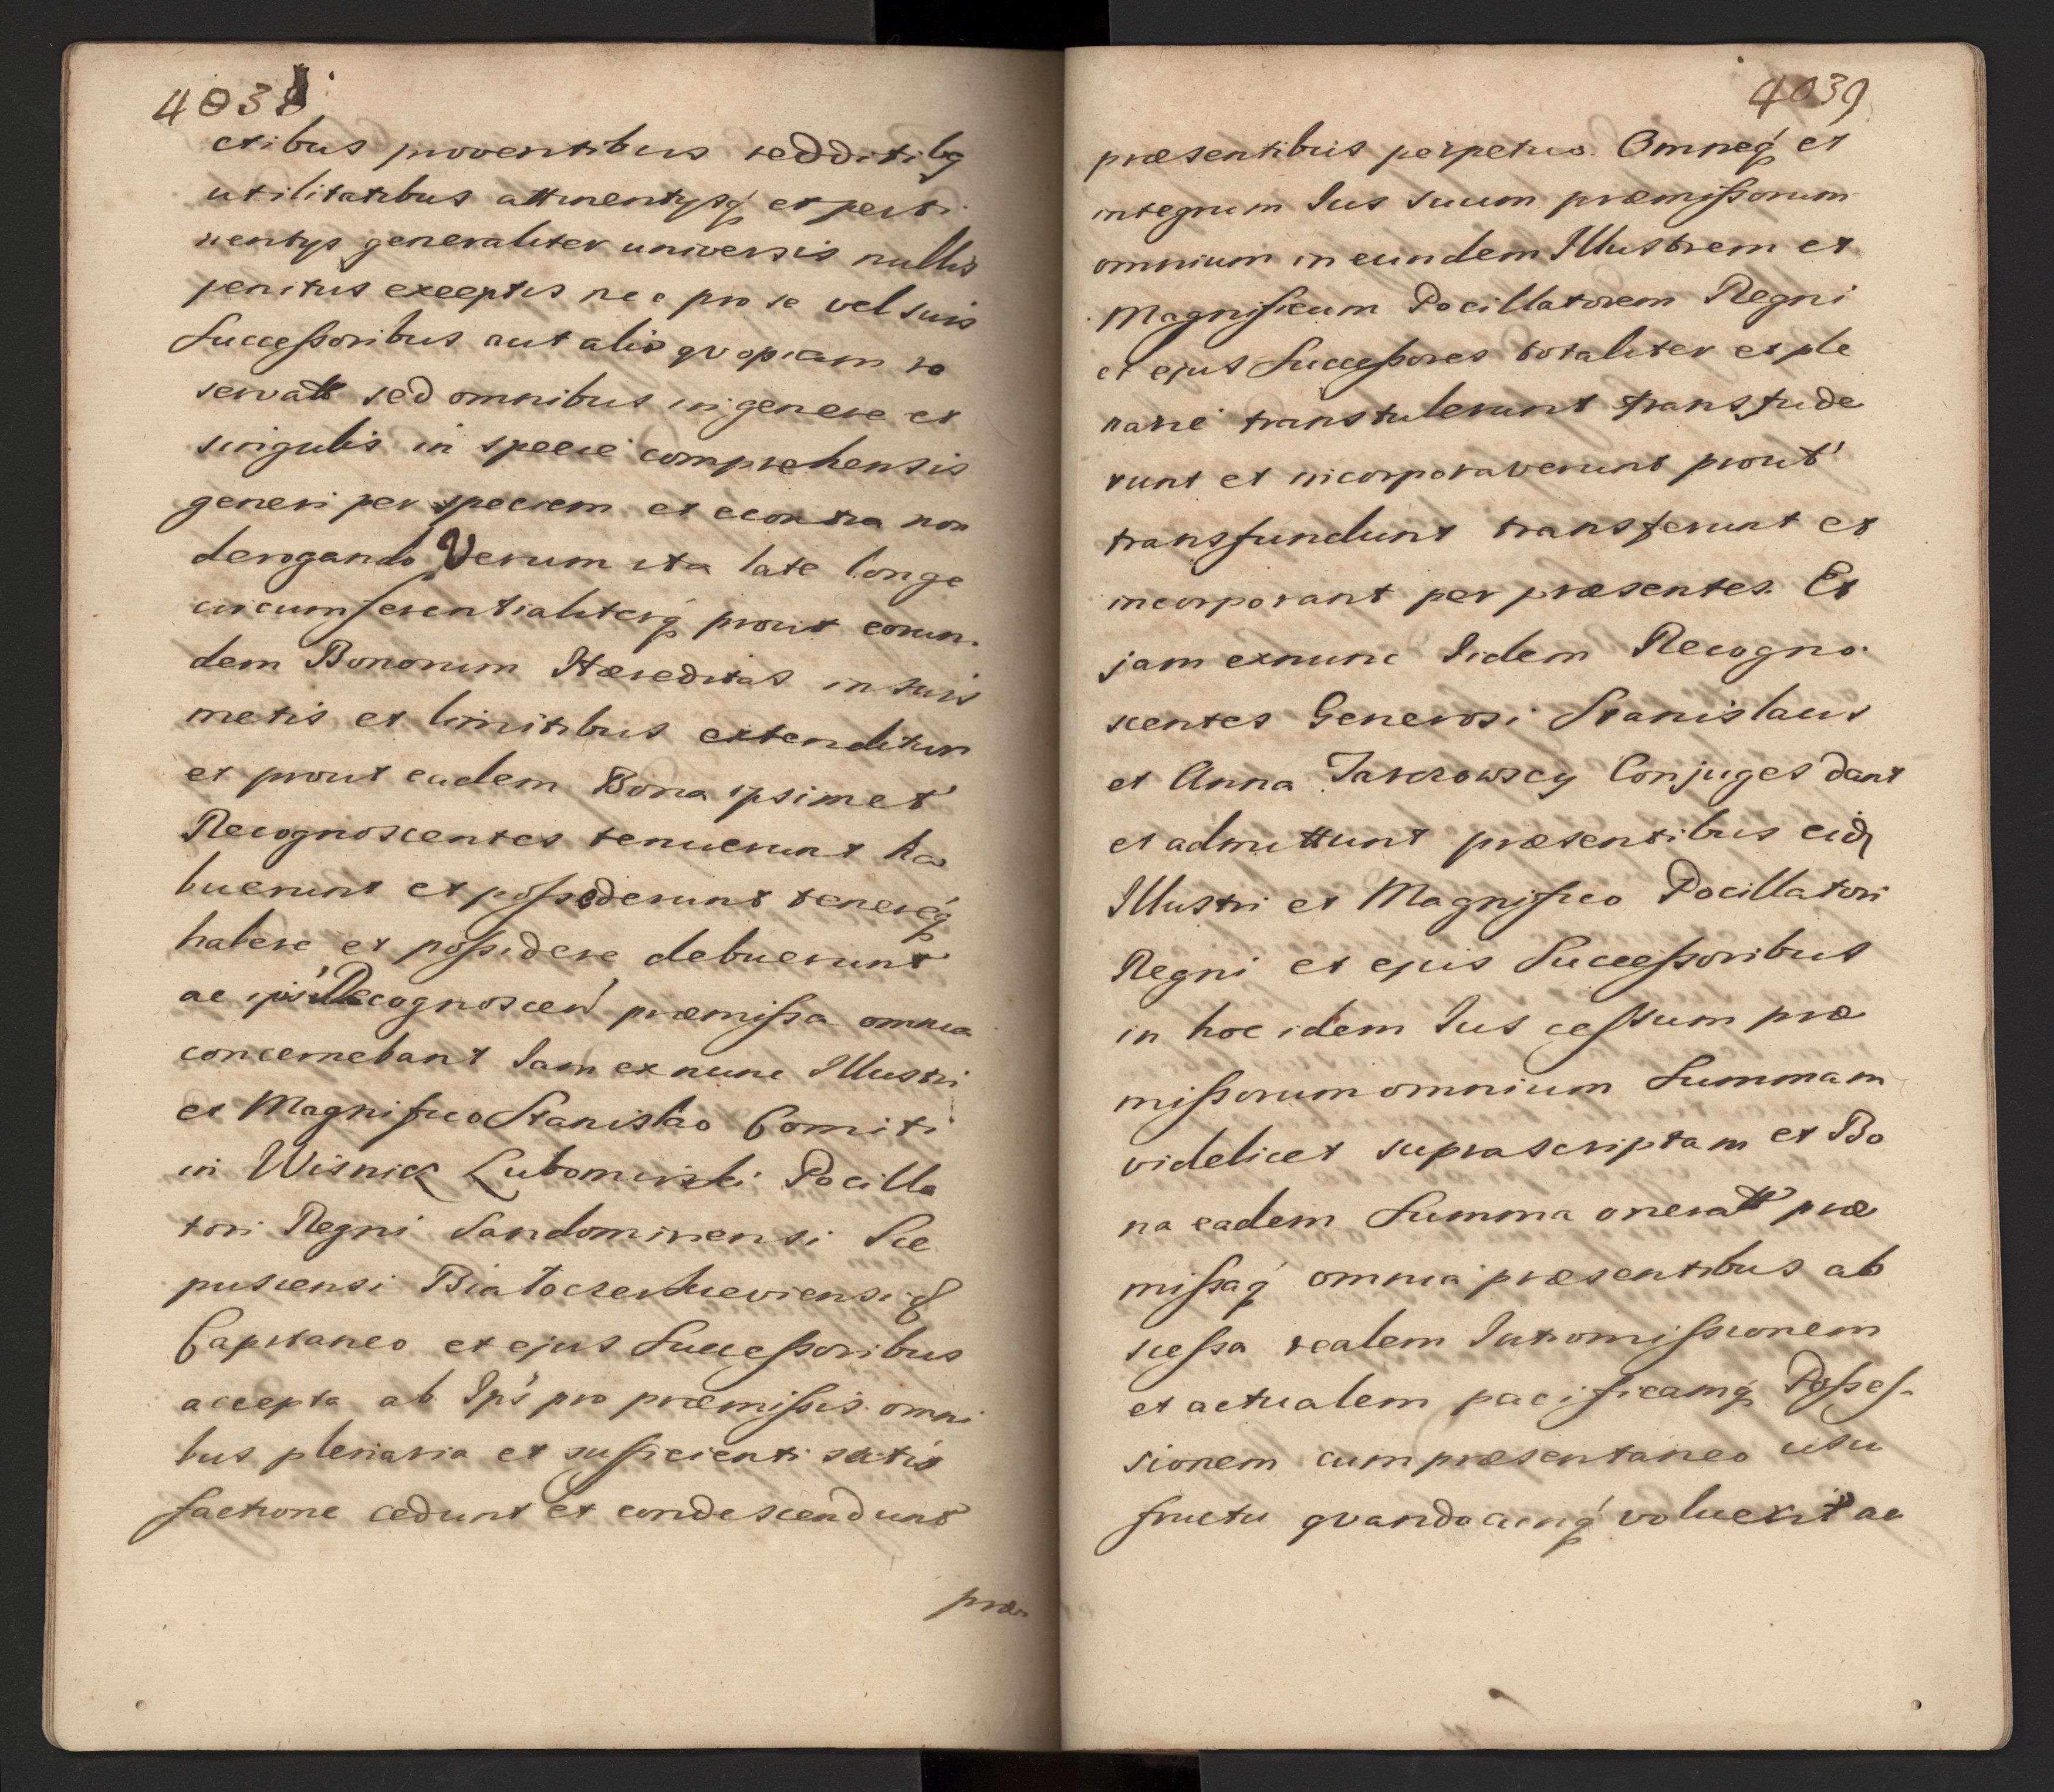 4038
ctibus proventibus redditibq
utilitatibus attinentysq et perti
nentys generaliter universis nullis
penitus exceptis nec pro se vel suis
Successoribus aut alio qvopiam re
servatt sed omnibus in genere et
singulis in specie comprehensis
generi per speciem et econtra non
derogando Verum ita late longe
circumferentialiterq prout eorun
dem Bonorum Hæreditas in suis
metis et limitibus extenditur
et prout eadem Bona ipsimet
Recognoscentes tenuerunt ha
buerunt et possederunt tenereq
habere et possidere debuerunt
ac ips Recognoscen præmissa omnia
concernebant Iam exnunc Illustri
et Magnifico Stanislao Comiti
in Wisnicz Lubomirski Pocilla
tori Regni Sandomiriensi Sce
pusiensi Białocerkieviensi q
Capitaneo et ejus Successoribus
accepta ab Ips pro præmissis omni
bus plenaria et sufficienti satis
factione cedunt et condescendunt
præ
4039
præsentibus perpetuo. Omneq et
integrum Ius suum præmissorum
omnium in eundem Illustrem et
Magnificum Pocillatorem Regni
et ejus Successores totaliter et ple
narie transtulerunt transfude
runt et incorporaverunt prout
transfundunt transferunt et
incorporant per præsentes. Et
jam exnunc Iidem Recogno
scentes Generosi Stanislaus
et Anna Conjuges dant
et admittunt præsentibus eid
Illustri et Magnifico Pocillatori
Regni et ejus Successoribus
in hoc idem Ius cessum præ
missorum omnium Summam
videlicet suprascriptam et Bo
na eadem Summa oneratt præ
missaq omnia præsentibus ab
scessa realem Intromissionem
et actualem pacificamq Posses
sionem cum præsentaneo usu
fructu qvandocunq voluerit ac